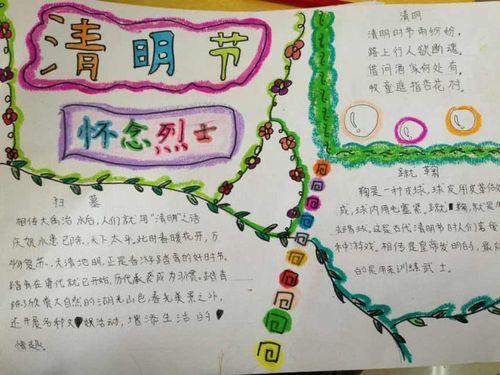 清明节
怀念烈士
清明
清明时节雨纷纷,
路上行人欲断魂,
借问酒家何处有,
牧童遥指杏花村。
扫墓
相传大禹治水后,人们就用"清明"之语
庆祝水患已除,天下太平。此时春暖花开,万
物复苏,天清地明,正是春游踏青的好时节。
踏青在唐代就已开始,历代承袭成为习惯。踏青
除了欣赏大自然的湖光山色、春光美景之外,
还开展各种文娱活动,增添生活的
情趣。
蹴鞠
鞠是一种皮球,球皮用皮革做
成,球内用毛塞紧。蹴鞠,就是用
这是古代清明节时人们喜爱
种游戏。相传是黄帝发明的,最初
的是用来训练武士。